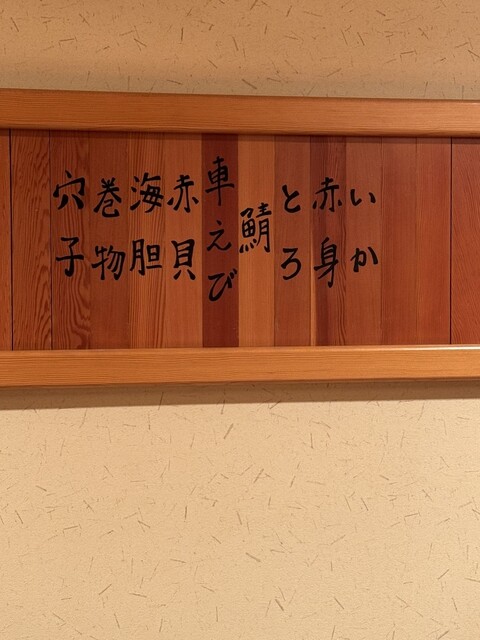 いか
赤身
とろ
鯖
車えび
赤貝
海胆
巻物
穴子